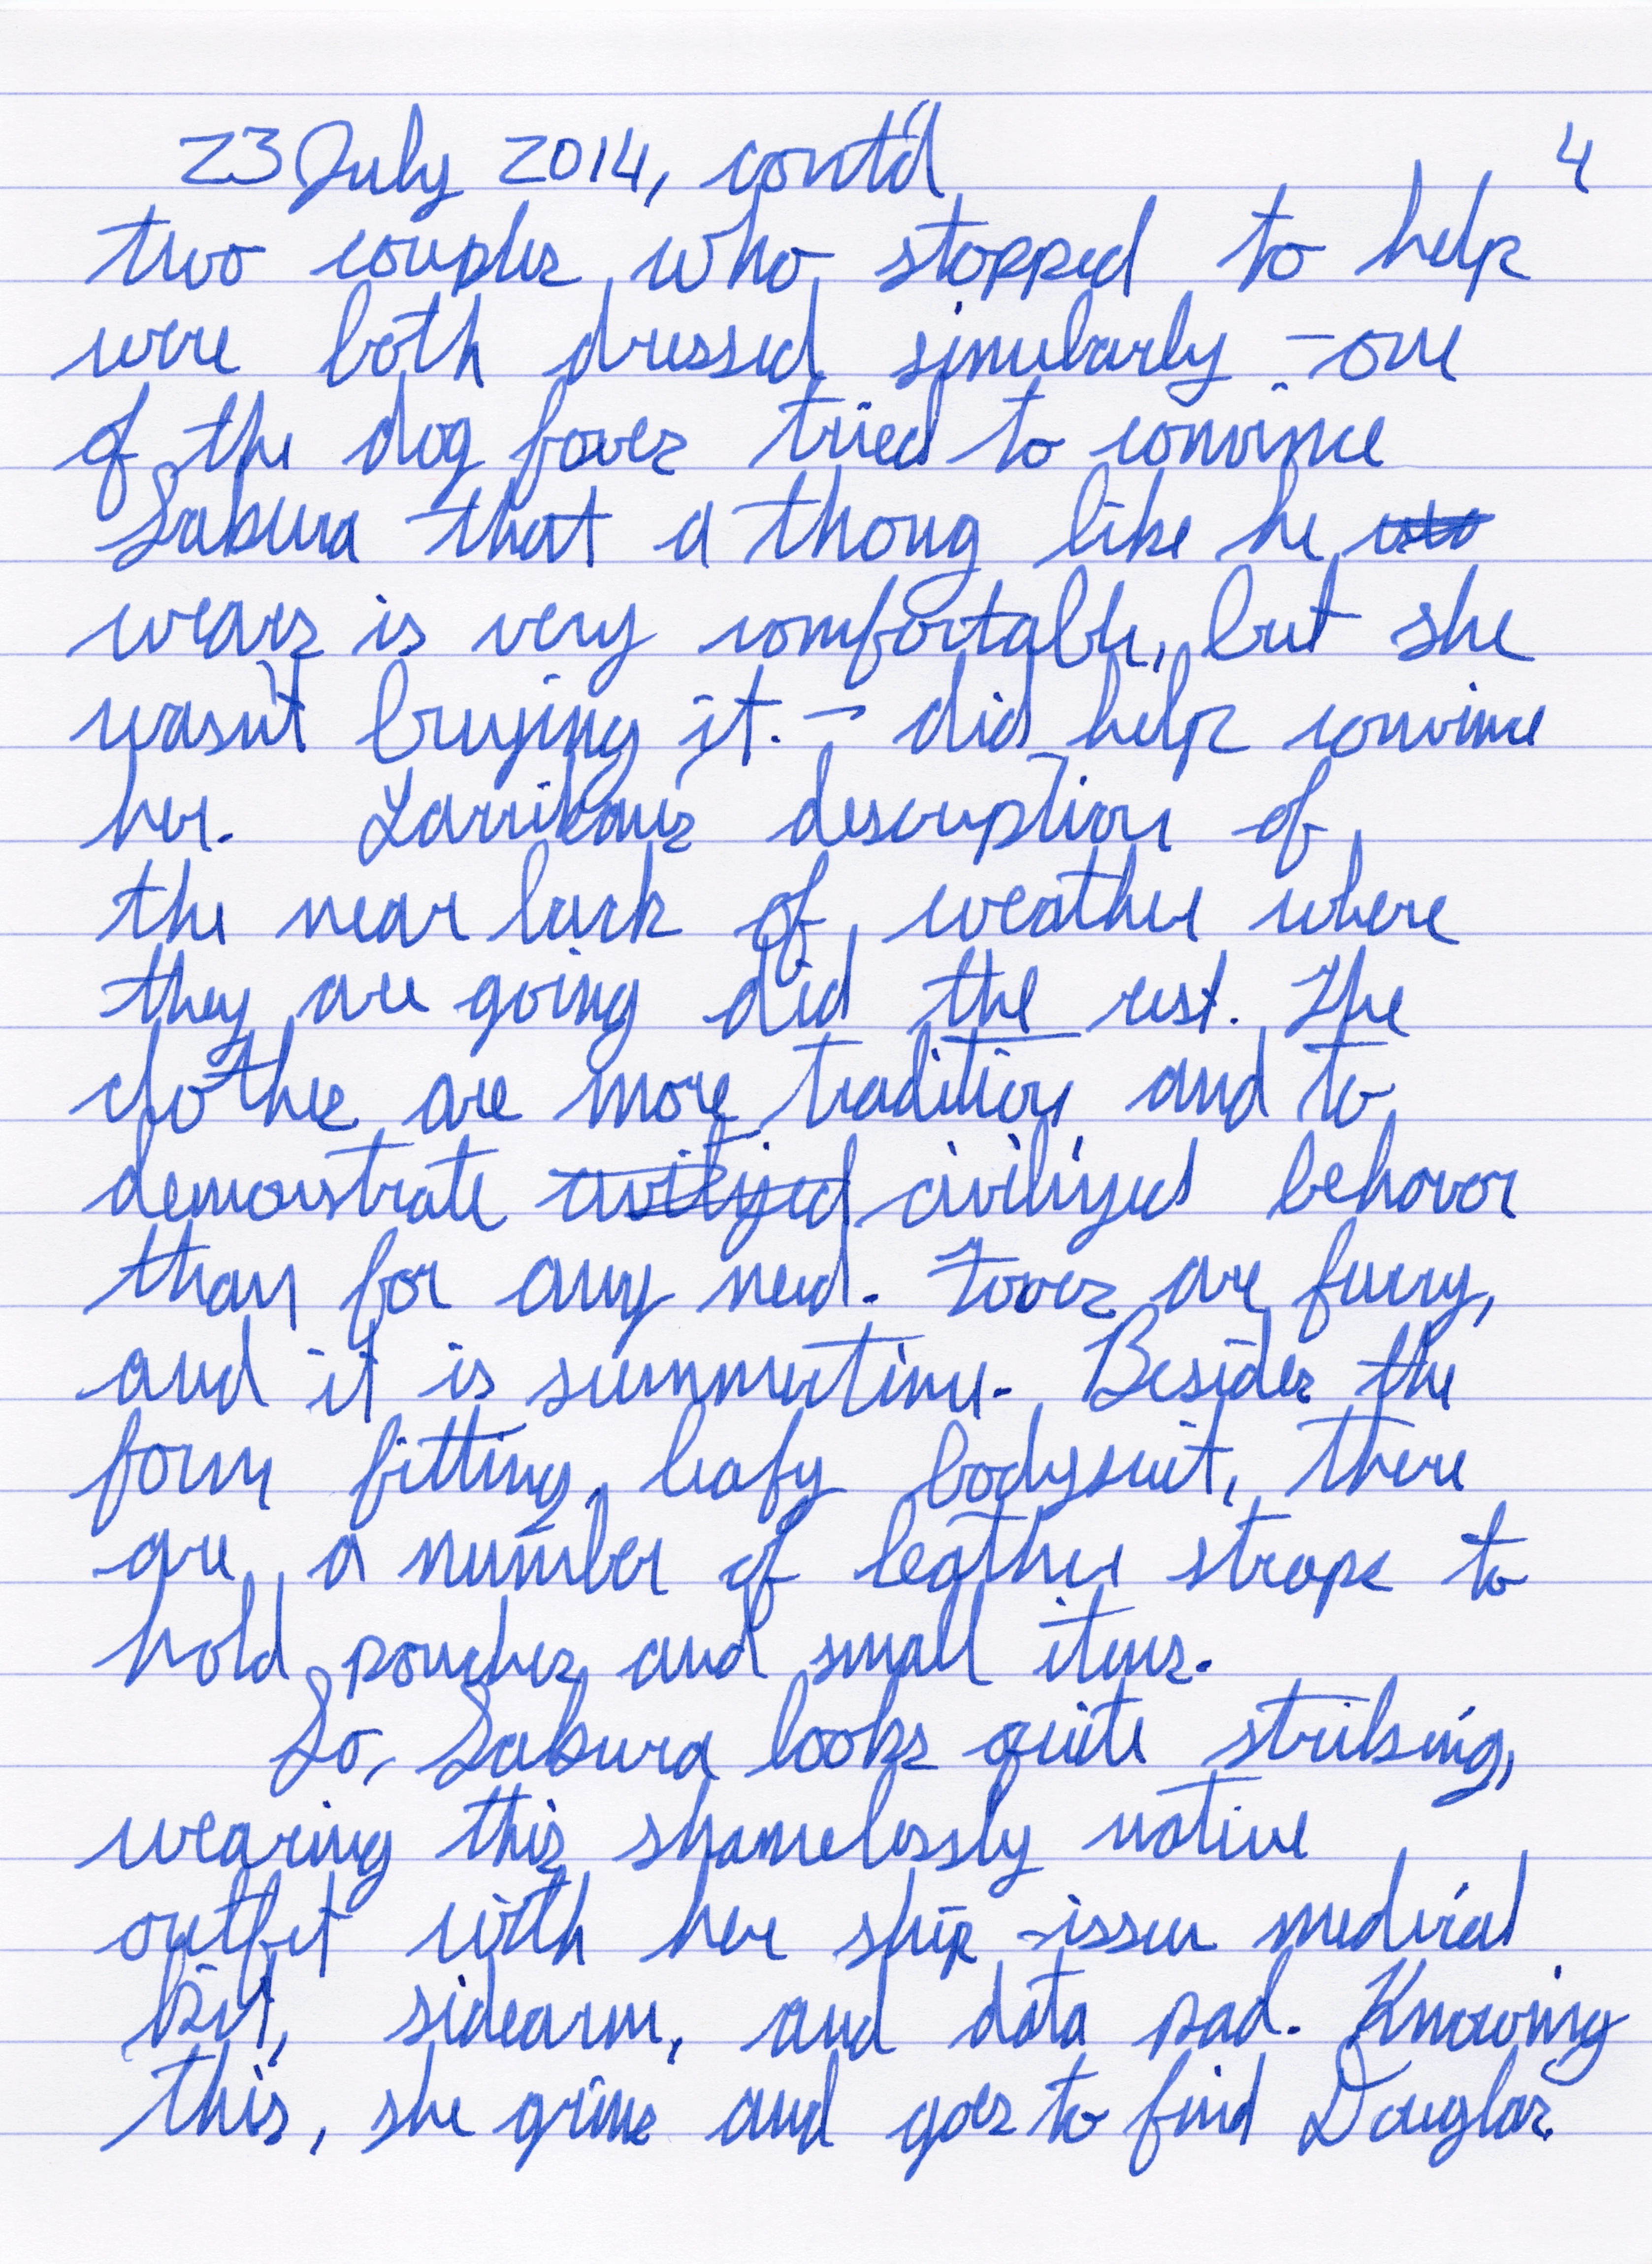 23 July 2014, cont'd 4
two couples who stopped to help
were both dressed simularly – one
of the dog foves tried to convince
Sakura that a thong like he
wears is very comfortable, but she
wasn't buying it. – did help convince
her. Larrikans description of
the near lack of weather where
they are going did the rest. The
clothes are more tradition and to
demonstrate civilized civilized behavor
than for any need. Foves are furry,
and it is summertime. Besides the
form fitting, leafy bodysuit, there
are a number of leather straps to
hold pouches and small items.
So, Sakura looks quite striking,
wearing this shamelessly native
outfit with her ship-issue medical
kit, sidearm, and data pad. Knowing
this, she grins and goes to find Douglas.